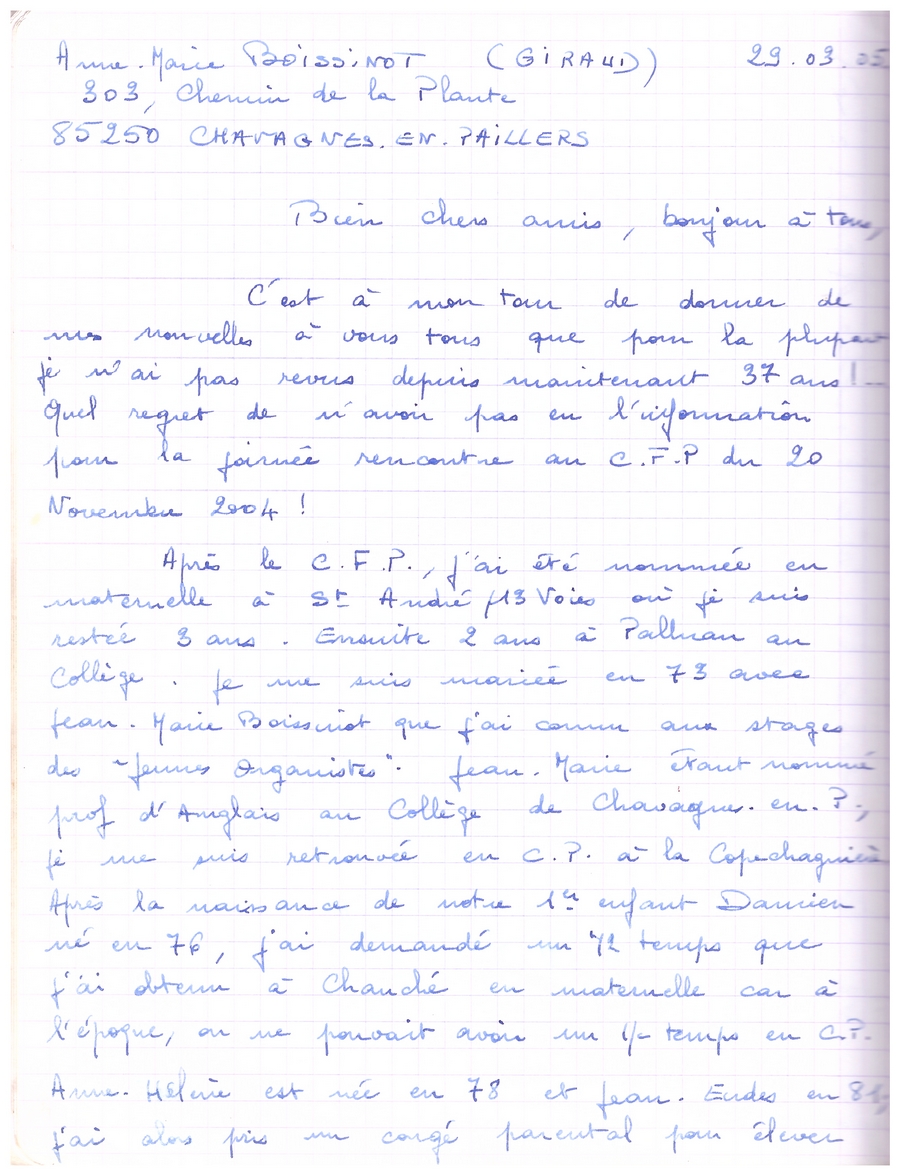 Anne-Marie BOISSINOT (GIRAUD) 29.03.05
303, Chemin de la Plante
85250 CHAVAGNES.EN.PAILLERS
Bien chers amis, bonjour à tous,
C'est à mon tour de donner de
mes nouvelles à vous tous que pour la plupart
je n'ai pas revus depuis maintenant 37 ans !..
Quel regret de n'avoir pas eu l'information
pour la journée rencontre au C.F.P du 20
Novembre 2004 !
Après le C.F.P., j'ai été nommée en
maternelle à St André /13 Voies où je suis
restée 3 ans. Ensuite 2 ans à Palluau au
Collège. Je me suis mariée en 73 avec
Jean-Marie Boissinot que j'ai connu aux stages
des "Jeunes Organistes". Jean-Marie étant nommé
prof d'Anglais au Collège de Chavagnes-en-P.,
je me suis retrouvée en C.P. à la Copechagnière
Après la naissance de notre 1er enfant Damien
né en 76, j'ai demandé un 1/2 temps que
j'ai obtenu à Chauché en maternelle car à
l'époque, on ne pouvait avoir un 1/2 temps en C.P.
Anne-Hélène est née en 78 et Jean-Eudes en 81,
j'ai alors pris un congé parental pour élever